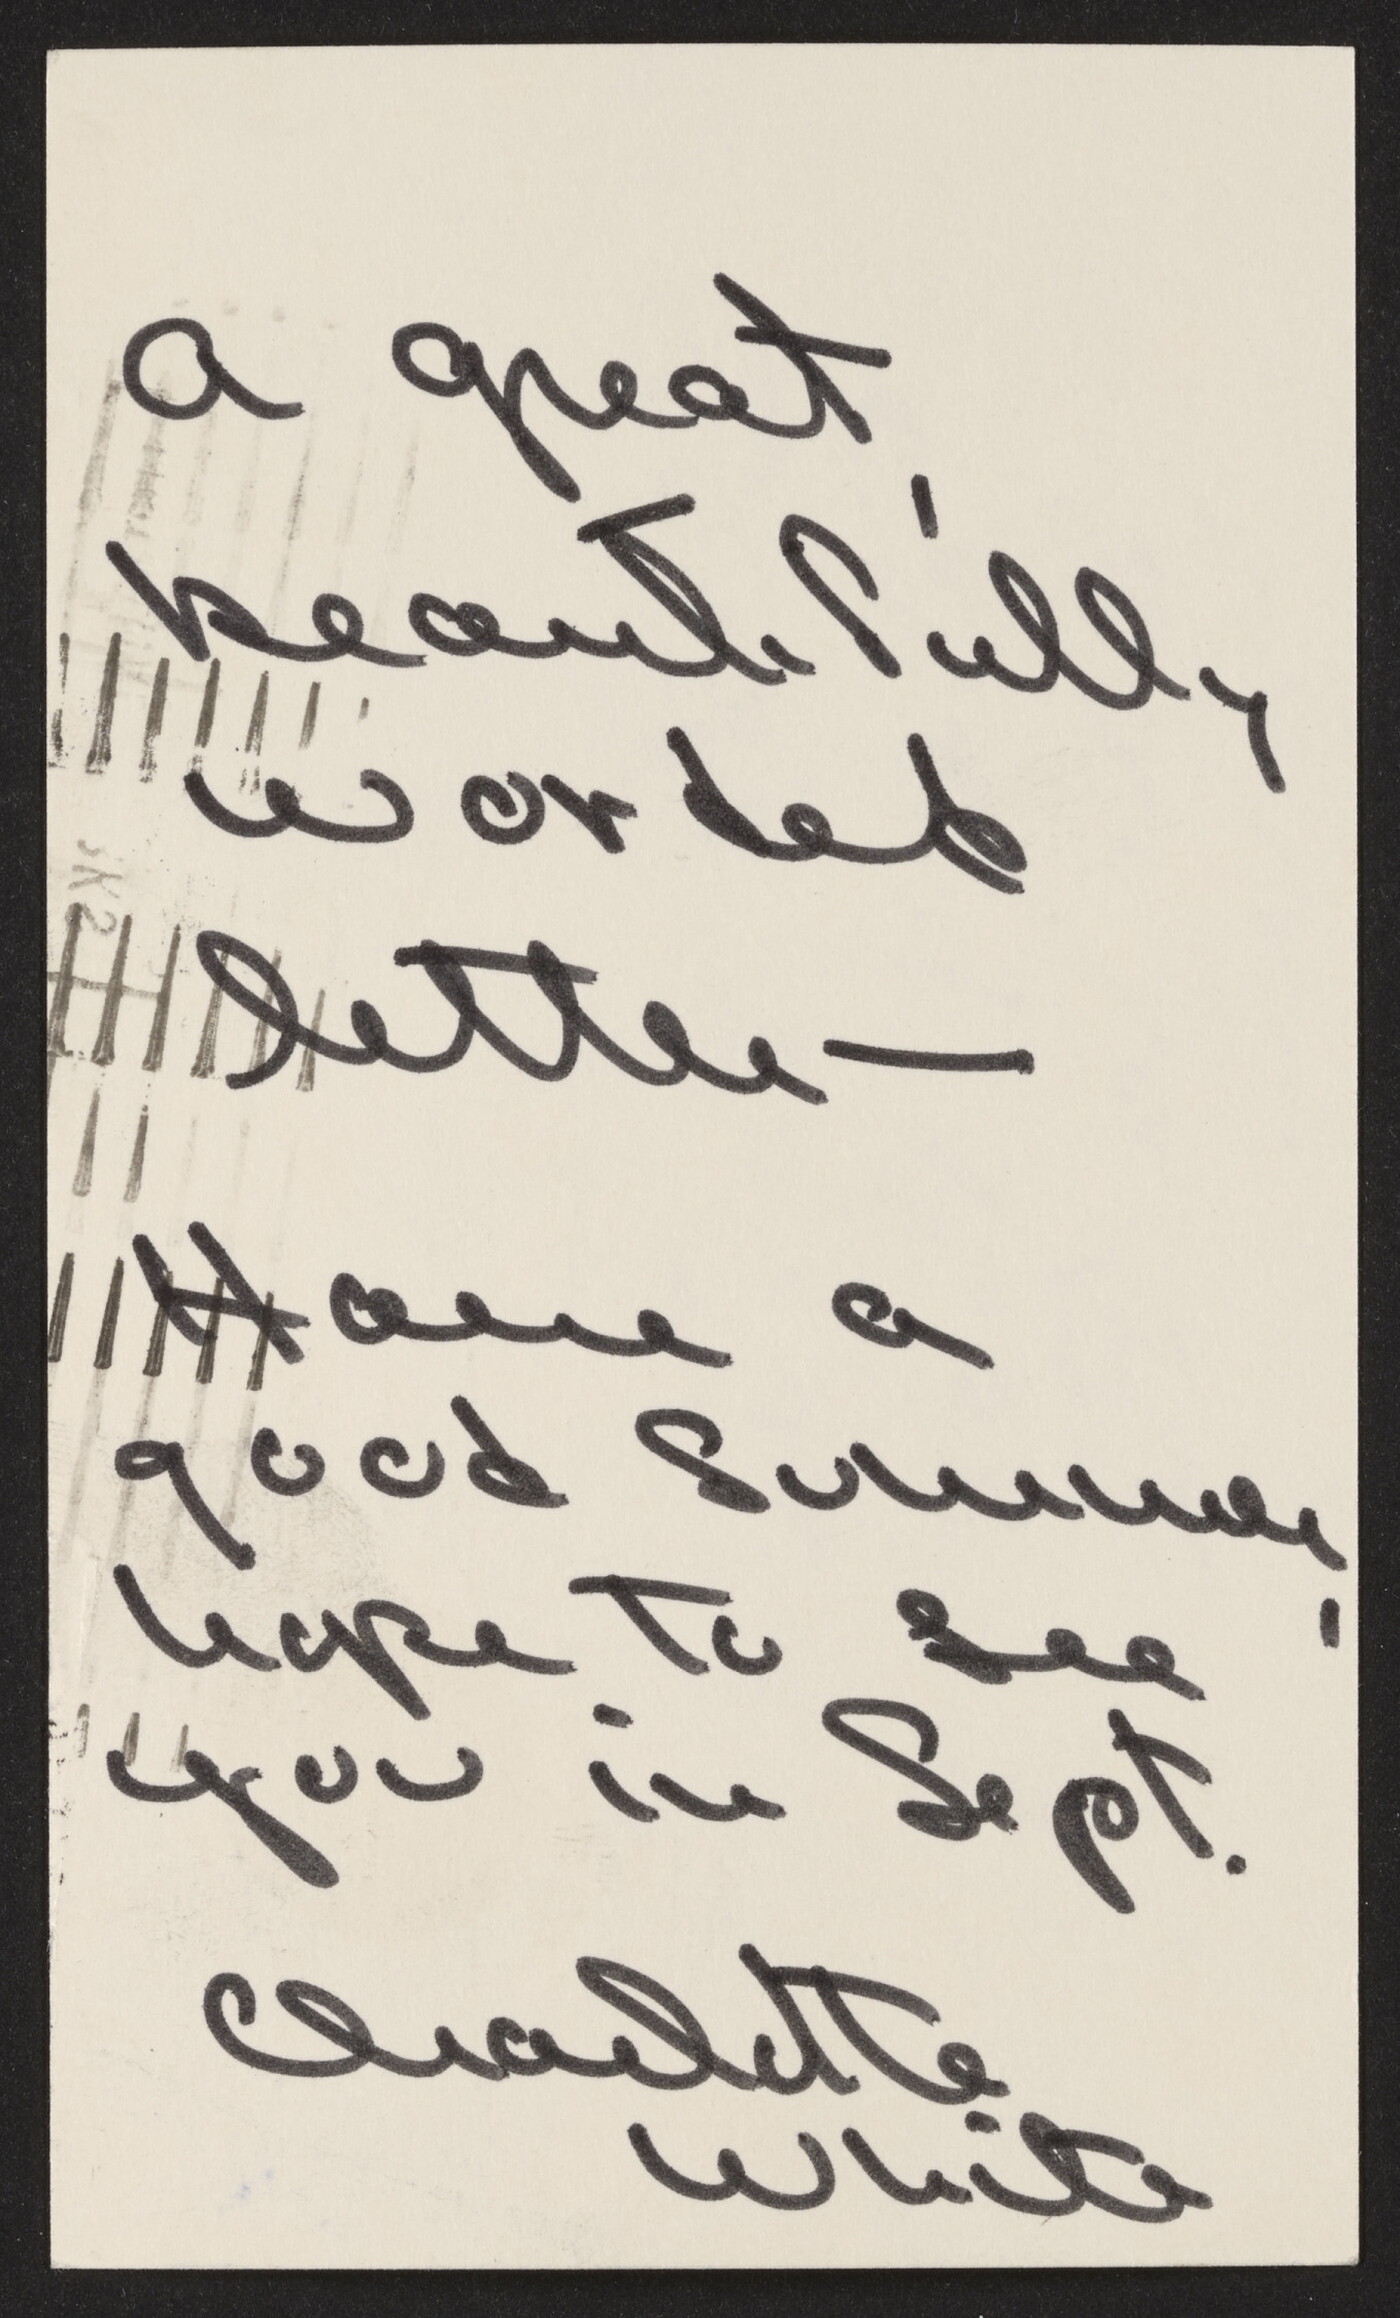 a great,
beautifully
worded
letter—
Have a
good Summer,
hope to see
you in Sept.
Charlotte
White